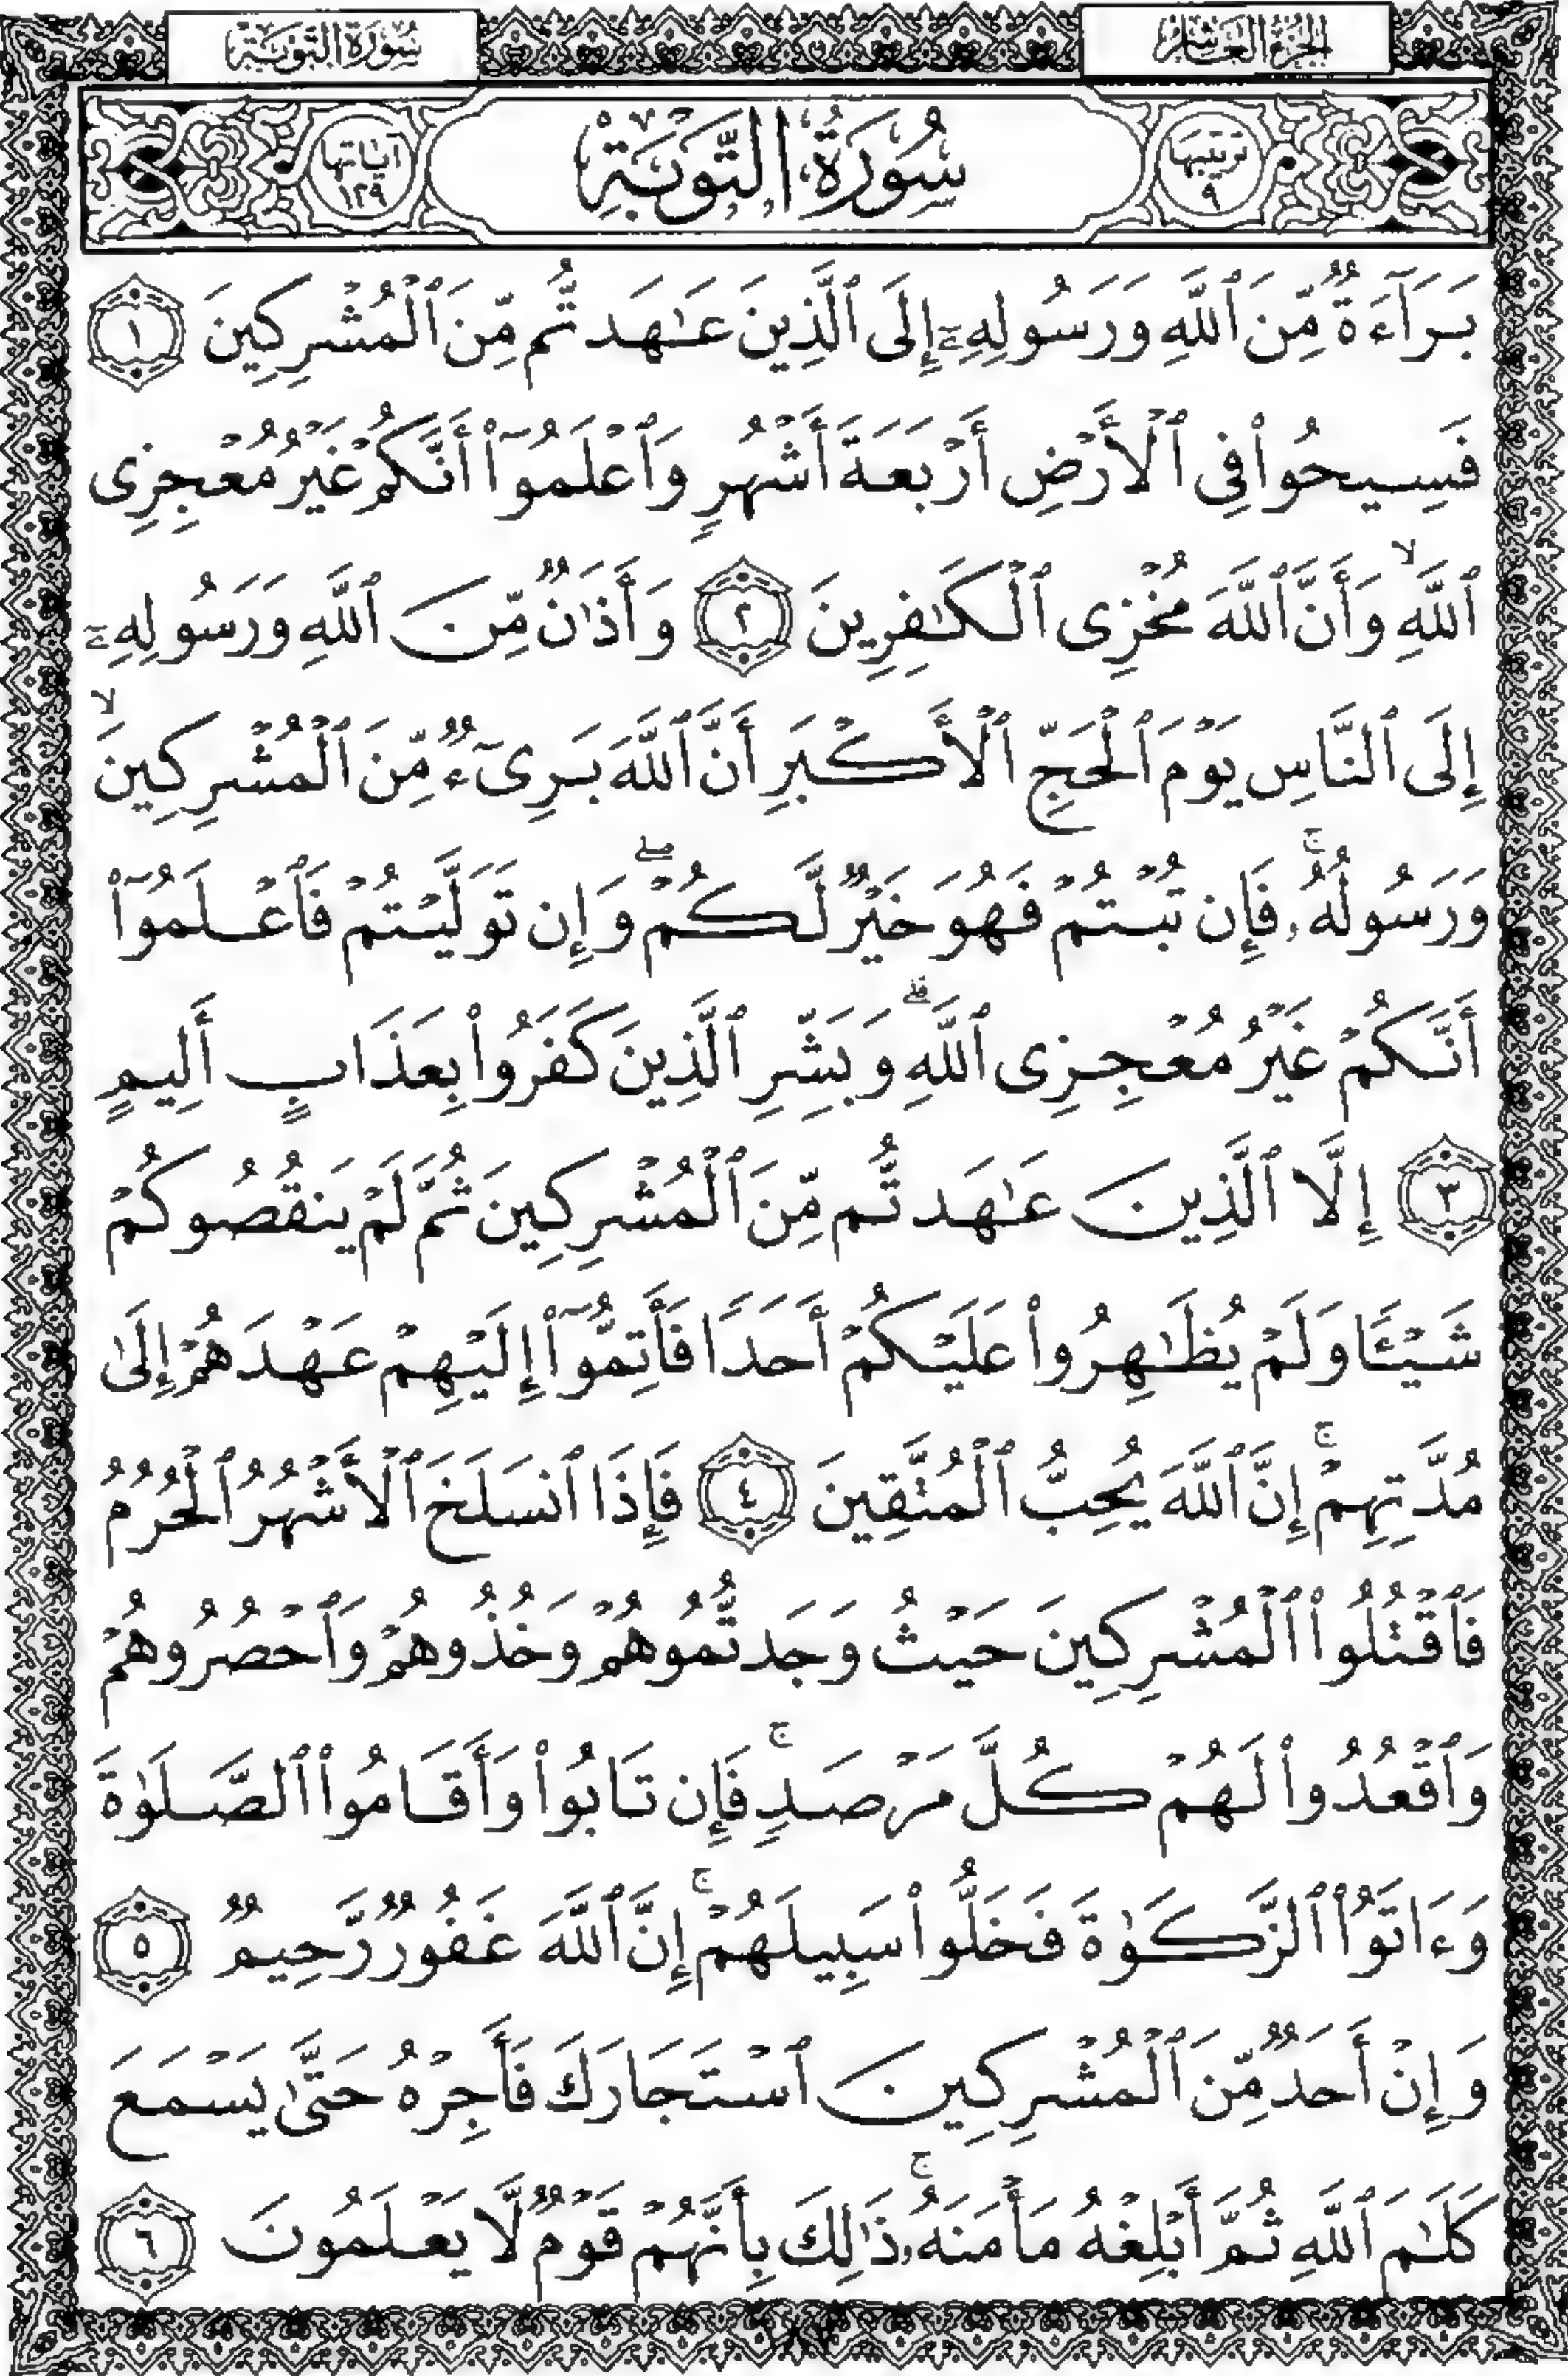 الجزء العاشر
سورة التوبة
ترتيبها ٩
سُورَةُ التَّوۡبَةِ
آياتها ١٢٩
بَرَآءَةٞ مِّنَ ٱللَّهِ وَرَسُولِهِۦٓ إِلَى ٱلَّذِينَ عَٰهَدتُّم مِّنَ ٱلۡمُشۡرِكِينَ ١
فَسِيحُواْ فِي ٱلۡأَرۡضِ أَرۡبَعَةَ أَشۡهُرٖ وَٱعۡلَمُوٓاْ أَنَّكُمۡ غَيۡرُ مُعۡجِزِي
ٱللَّهِۙ وَأَنَّ ٱللَّهَ مُخۡزِي ٱلۡكَٰفِرِينَ ٢ وَأَذَٰنٞ مِّنَ ٱللَّهِ وَرَسُولِهِۦٓ
إِلَى ٱلنَّاسِ يَوۡمَ ٱلۡحَجِّ ٱلۡأَكۡبَرِ أَنَّ ٱللَّهَ بَرِيٓءٞ مِّنَ ٱلۡمُشۡرِكِينَۙ
وَرَسُولُهُۥۚ فَإِن تُبۡتُمۡ فَهُوَ خَيۡرٞ لَّكُمۡۖ وَإِن تَوَلَّيۡتُمۡ فَٱعۡلَمُوٓاْ
أَنَّكُمۡ غَيۡرُ مُعۡجِزِي ٱللَّهِۗ وَبَشِّرِ ٱلَّذِينَ كَفَرُواْ بِعَذَابٍ أَلِيمٍ
٣ إِلَّا ٱلَّذِينَ عَٰهَدتُّم مِّنَ ٱلۡمُشۡرِكِينَ ثُمَّ لَمۡ يَنقُصُوكُمۡ
شَيۡـٔٗا وَلَمۡ يُظَٰهِرُواْ عَلَيۡكُمۡ أَحَدٗا فَأَتِمُّوٓاْ إِلَيۡهِمۡ عَهۡدَهُمۡ إِلَىٰ
مُدَّتِهِمۡۚ إِنَّ ٱللَّهَ يُحِبُّ ٱلۡمُتَّقِينَ ٤ فَإِذَا ٱنسَلَخَ ٱلۡأَشۡهُرُ ٱلۡحُرُمُ
فَٱقۡتُلُواْ ٱلۡمُشۡرِكِينَ حَيۡثُ وَجَدتُّمُوهُمۡ وَخُذُوهُمۡ وَٱحۡصُرُوهُمۡ
وَٱقۡعُدُواْ لَهُمۡ كُلَّ مَرۡصَدٖۚ فَإِن تَابُواْ وَأَقَامُواْ ٱلصَّلَوٰةَ
وَءَاتَوُاْ ٱلزَّكَوٰةَ فَخَلُّواْ سَبِيلَهُمۡۚ إِنَّ ٱللَّهَ غَفُورٞ رَّحِيمٞ ٥
وَإِنۡ أَحَدٞ مِّنَ ٱلۡمُشۡرِكِينَ ٱسۡتَجَارَكَ فَأَجِرۡهُ حَتَّىٰ يَسۡمَعَ
كَلَٰمَ ٱللَّهِ ثُمَّ أَبۡلِغۡهُ مَأۡمَنَهُۥۚ ذَٰلِكَ بِأَنَّهُمۡ قَوۡمٞ لَّا يَعۡلَمُونَ ٦